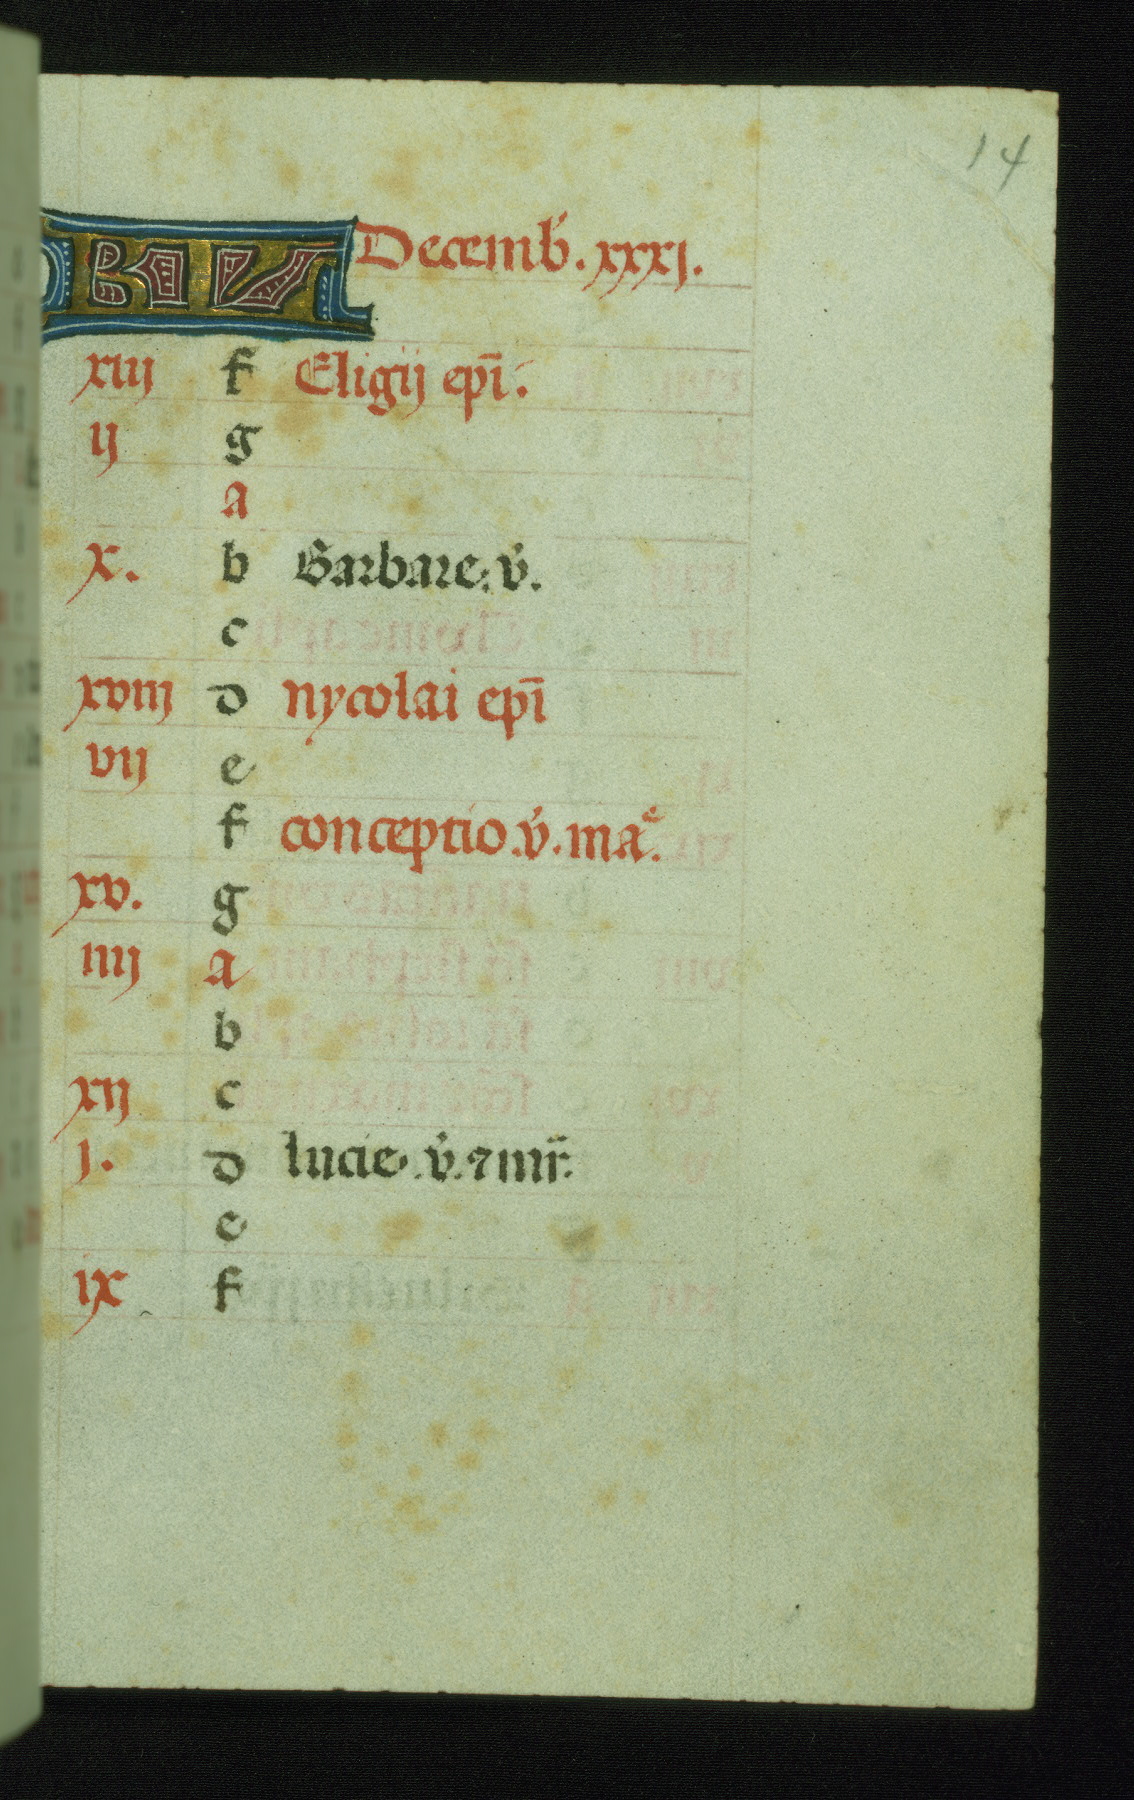 14
KL Decemb. xxxj.
xiij f Eligij epī.
ij g
a
x. b Barbare. v.
c
xviij d nycolai epī
vij e
f conceptio. v. mae.
xv. g
iiij a
b
xij c
j. d lucie. v. ⁊ mr̄.
e
ix f